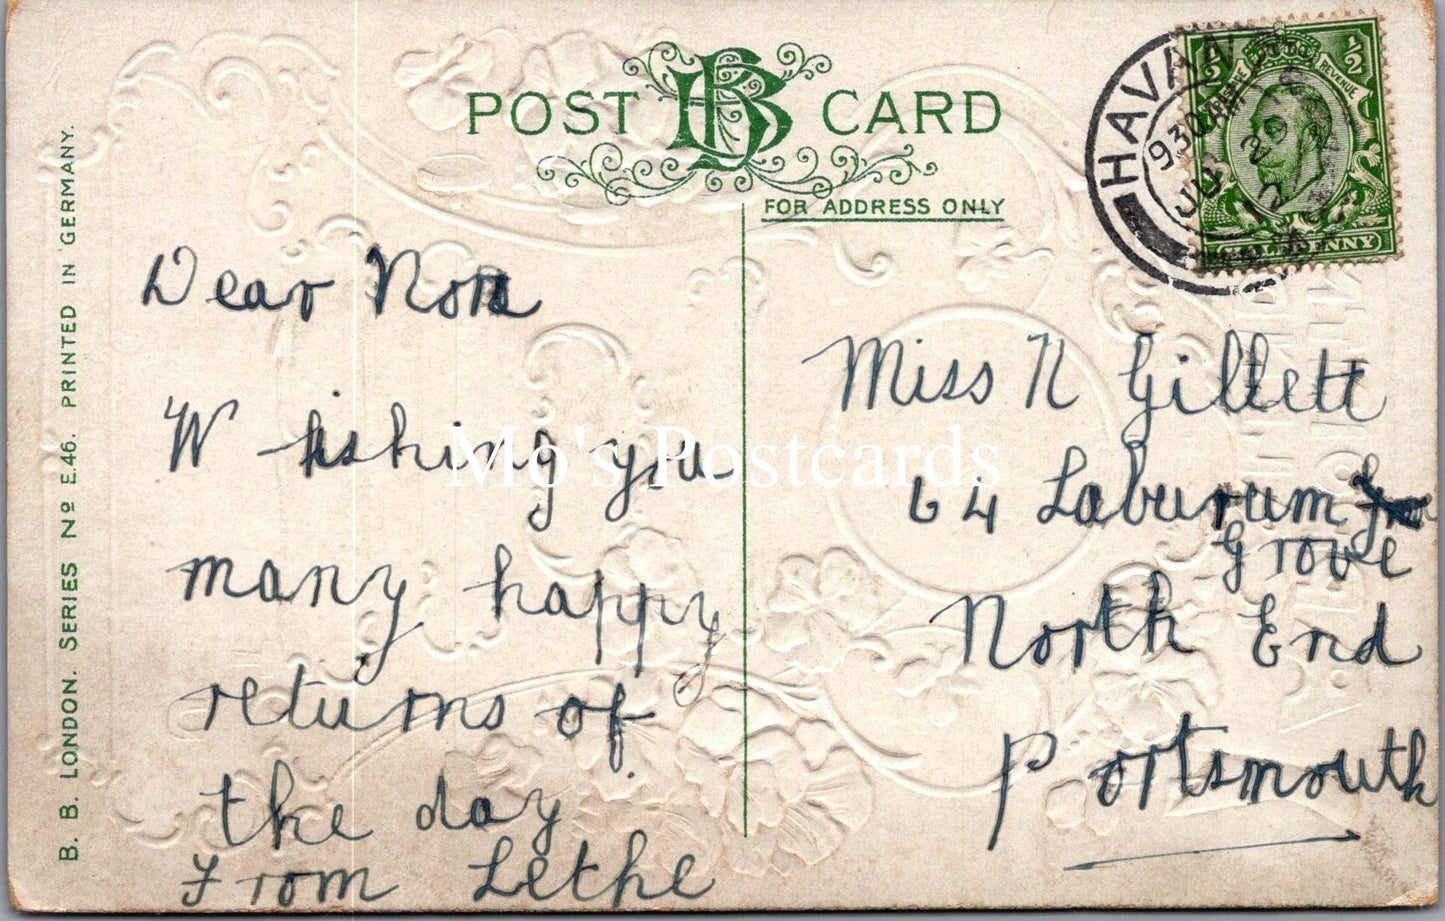 POST BB CARD
FOR ADDRESS ONLY
HAVAN
9 30 AM
JU 29
12
½ POSTAGE REVENUE ½
HALFPENNY
B. B. LONDON. SERIES Nº E.46. PRINTED IN GERMANY.
Dear Nora
Wishing you
many happy
returns of
the day
From Lethe
Miss N Gillett
64 Laburnum
Grove
North End
Portsmouth
Mo's Postcards